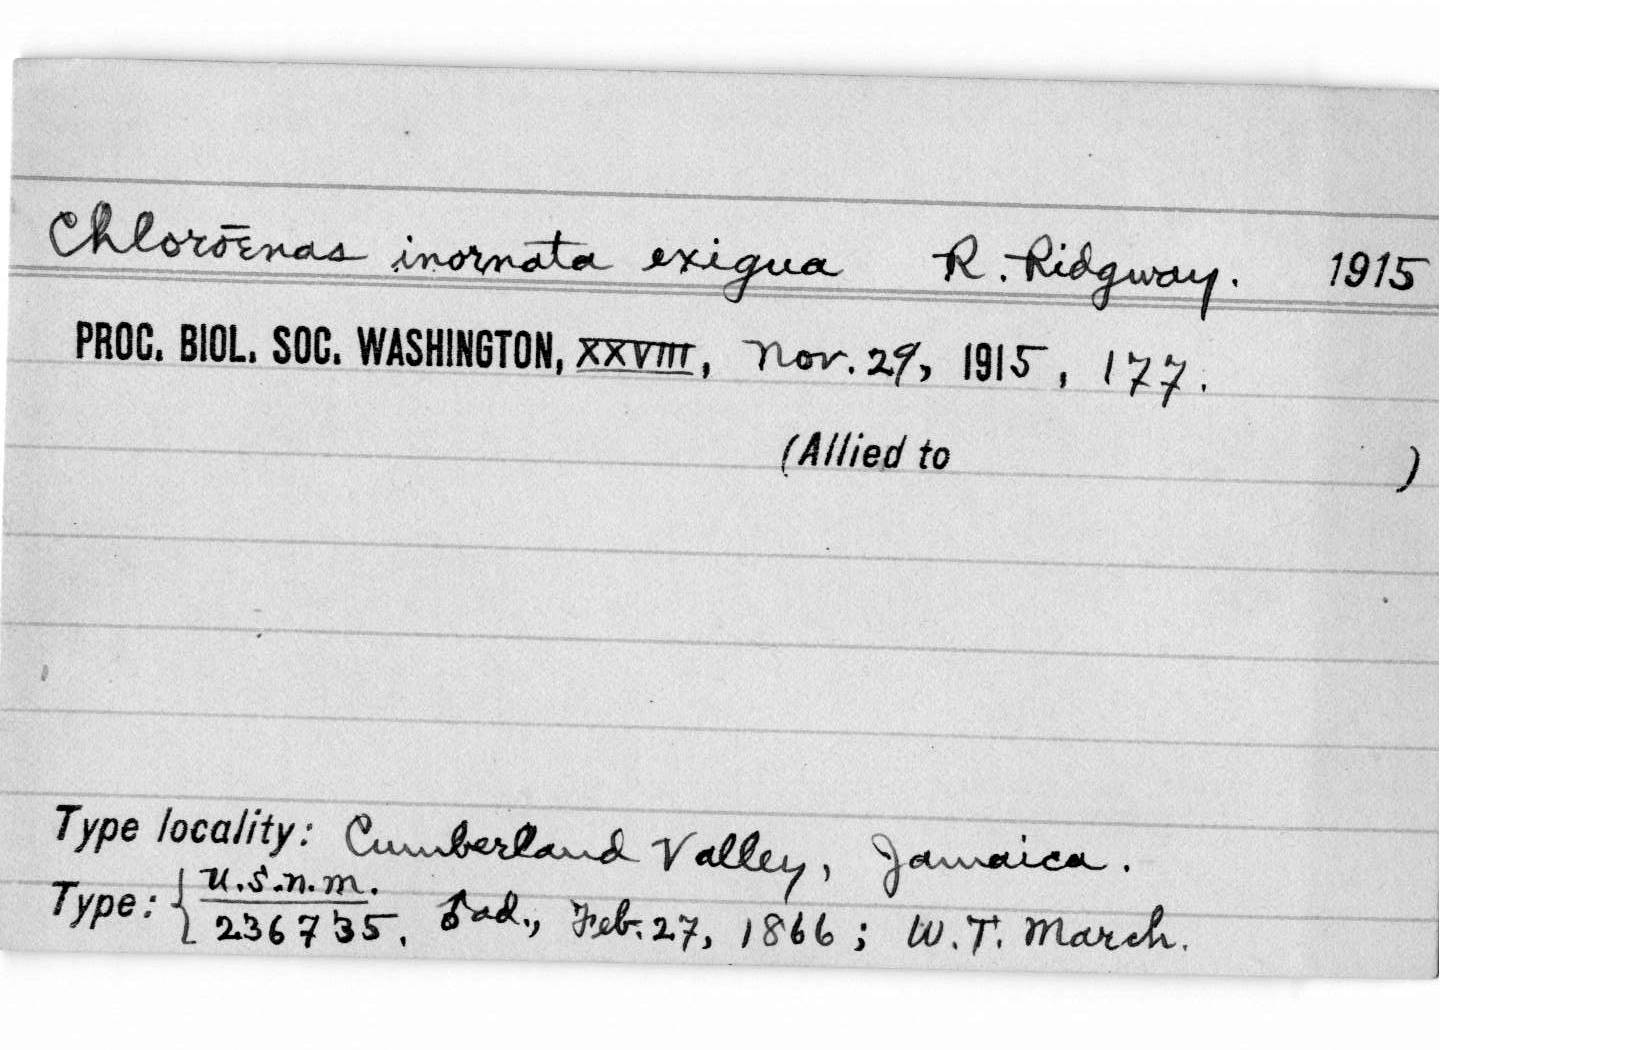 Chlorœnas inornata exigua R. Ridgway. 1915
PROC. BIOL. SOC. WASHINGTON, XXVIII, Nov. 29, 1915, 177.
(Allied to )
Type locality: Cumberland Valley, Jamaica.
Type: { U.S.N.M.
236735. ♂ ad., Feb. 27, 1866; W. T. March.